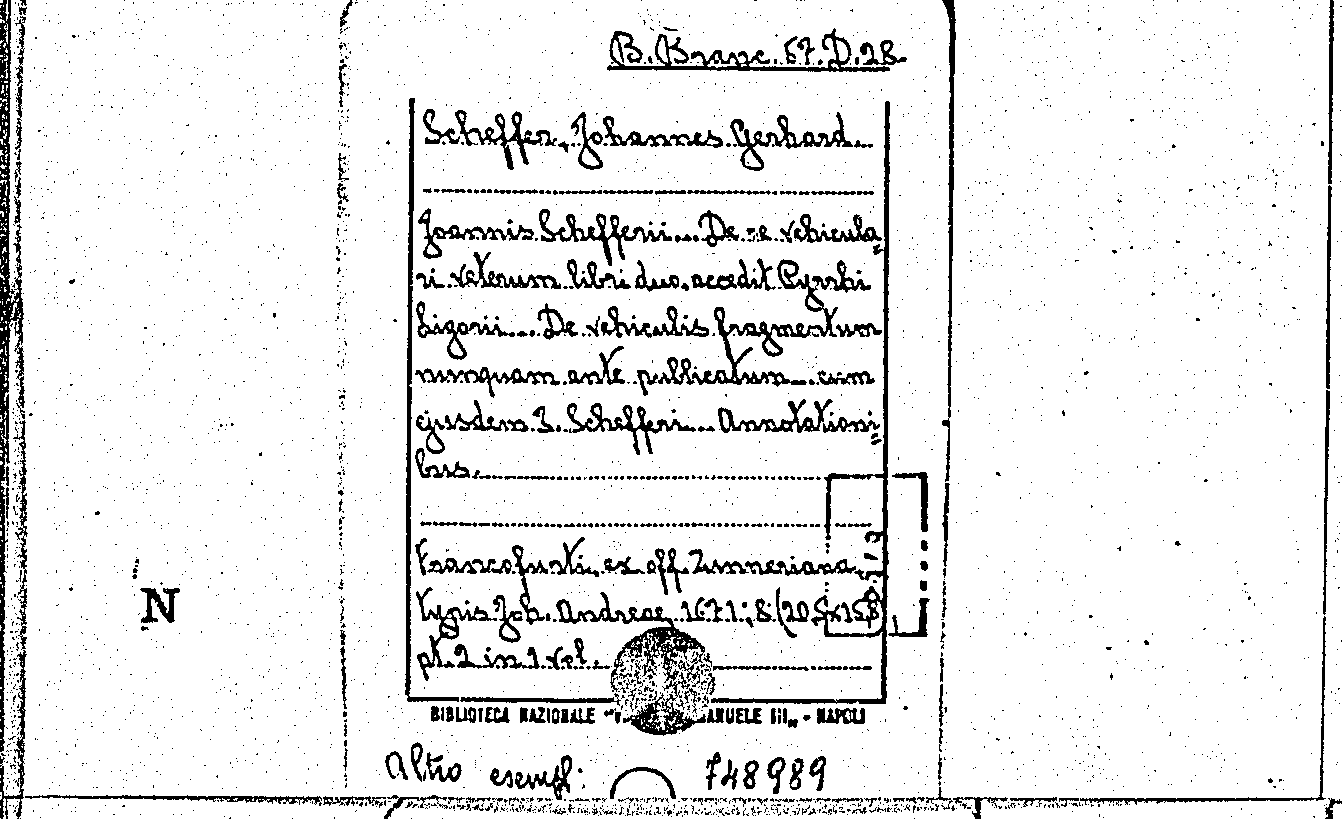 B. Branc. 67. D. 28.
Scheffer, Johannes Gerhard.
Joannis Schefferii... De re vehicula=
ri veterum libri duo, accedit Pyrrhi
Ligorii... De vehiculis fragmentum
nunquam ante publicatum... cum
ejusdem J. Schefferi... Annotationi=
bus.
Francofurti, ex off. Zunneriana,
typis Joh. Andreae, 1671; 8.
N
pt. 2 in 1 vol.
BIBLIOTECA NAZIONALE ANUELE III„ - NAPOLI
Altro esempl: 748989